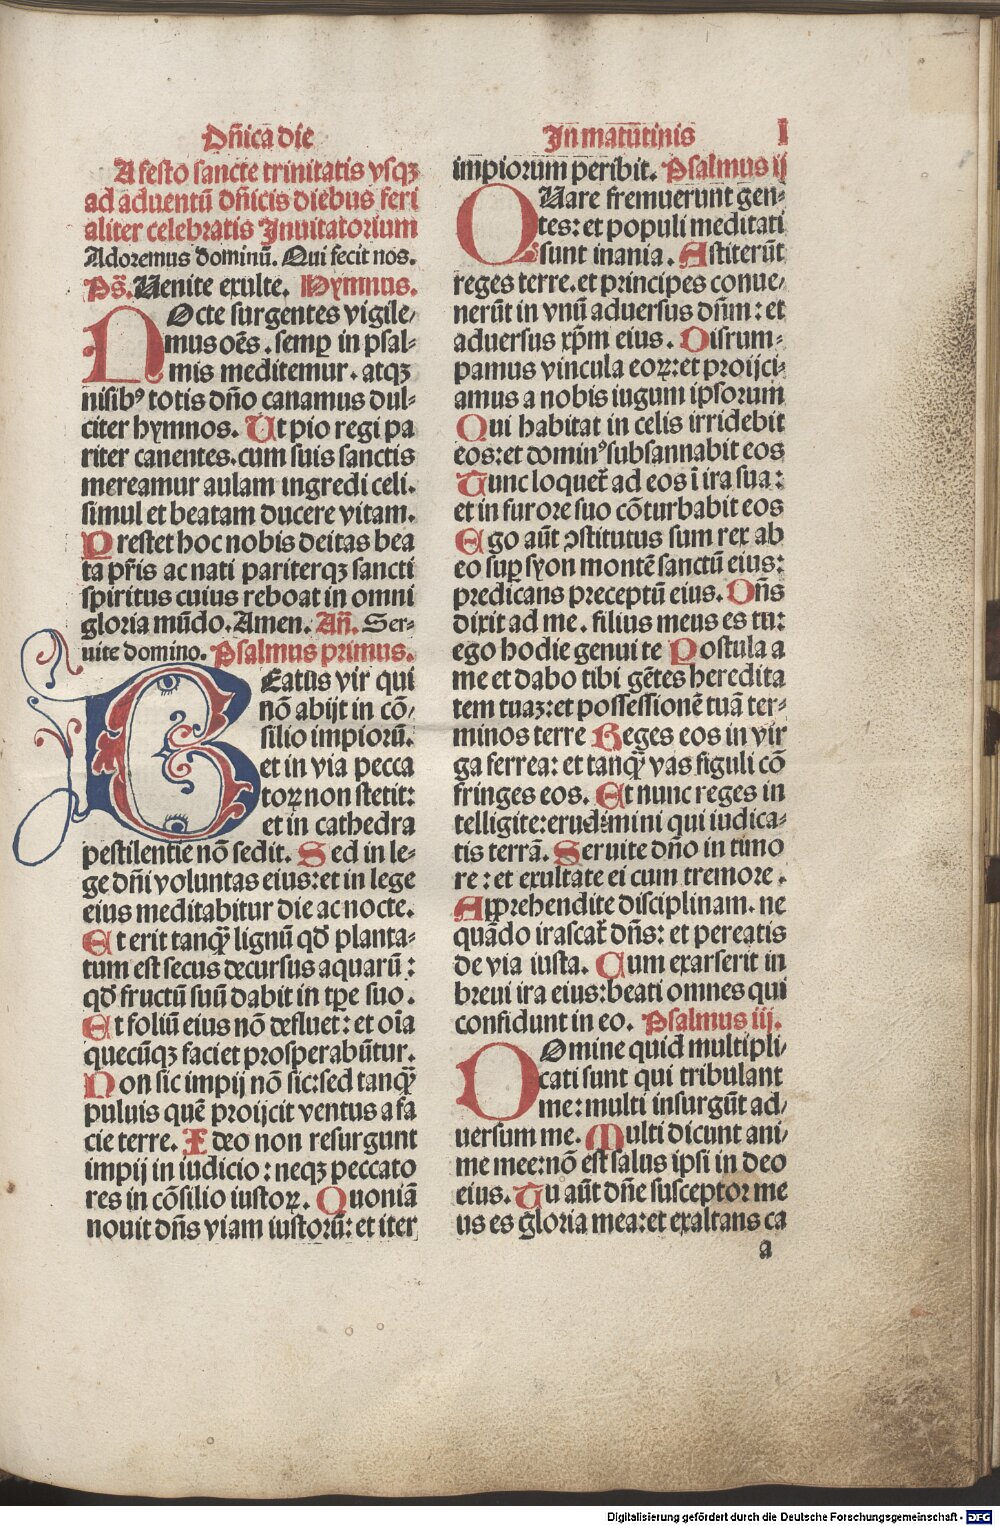 Dn̄ica die
In matutinis
I
A festo sancte trinitatis vsqꝫ
ad aduentū dn̄icis diebus feri
aliter celebratis Inuitatorium
Adoremus dominū. Qui fecit nos.
Ps̄. Uenite exulte. Hymnus.
NOcte surgentes vigile⸗
mus oēs. semꝑ in psal⸗
mis meditemur. atqꝫ
nisibꝰ totis dn̄o canamus dul⸗
citer hymnos. Ut pio regi pa
riter canentes. cum suis sanctis
mereamur aulam ingredi celi.
simul et beatam ducere vitam.
Prestet hoc nobis deitas bea
ta pr̄is ac nati pariterqꝫ sancti
spiritus cuius reboat in omni
gloria mūdo. Amen. An̄. Ser⸗
uite domino. Psalmus primus.
BEatus vir qui
nō abijt in cō⸗
silio impiorū.
et in via pecca
toꝝ non stetit:
et in cathedra
pestilentie nō sedit. Sed in le⸗
ge dn̄i voluntas eius: et in lege
eius meditabitur die ac nocte.
Et erit tanqͣ̄ lignū qd̄ planta⸗
tum est secus decursus aquarū:
qd̄ fructū suū dabit in tp̄e suo.
Et foliū eius nō defluet: et oīa
quecūqꝫ faciet prosperabūtur.
Non sic impij nō sic: sed tanqͣ̄
puluis quē proijcit ventus a fa
cie terre. Ideo non resurgunt
impij in iudicio: neqꝫ peccato
res in cōsilio iustoꝝ. Quoniā
nouit dn̄s viam iustorū: et iter
impiorum peribit. Psalmus ij
QUare fremuerunt gen⸗
tes: et populi meditati
sunt inania. Astiterūt
reges terre. et principes conue⸗
nerūt in vnū aduersus dn̄m: et
aduersus xp̄m eius. Disrum⸗
pamus vincula eoꝝ: et proijci⸗
amus a nobis iugum ipsorum
Qui habitat in celis irridebit
eos: et dominꝰ subsannabit eos
Tunc loquet᷑ ad eos ī ira sua:
et in furore suo cōturbabit eos
Ego aūt ꝯstitutus sum rex ab
eo suꝑ syon montē sanctū eius:
predicans preceptū eius. Dn̄s
dixit ad me. filius meus es tu:
ego hodie genui te Postula a
me et dabo tibi gētes heredita
tem tuaꝫ: et possessionē tuā ter⸗
minos terre Reges eos in vir
ga ferrea: et tanqͣ̄ vas figuli cō
fringes eos. Et nunc reges in
telligite: erudimini qui iudica⸗
tis terrā. Seruite dn̄o in timo
re: et exultate ei cum tremore.
Apprehendite disciplinam. ne
quādo irascat᷑ dn̄s: et pereatis
de via iusta. Cum exarserit in
breui ira eius: beati omnes qui
confidunt in eo. Psalmus iij.
DOmine quid multipli⸗
cati sunt qui tribulant
me: multi insurgūt ad⸗
uersum me. Multi dicunt ani⸗
me mee: nō est salus ipsi in deo
eius. Tu aūt dn̄e susceptor me
us es gloria mea: et exaltans ca
a
Digitalisierung gefördert durch die Deutsche Forschungsgemeinschaft - DFG